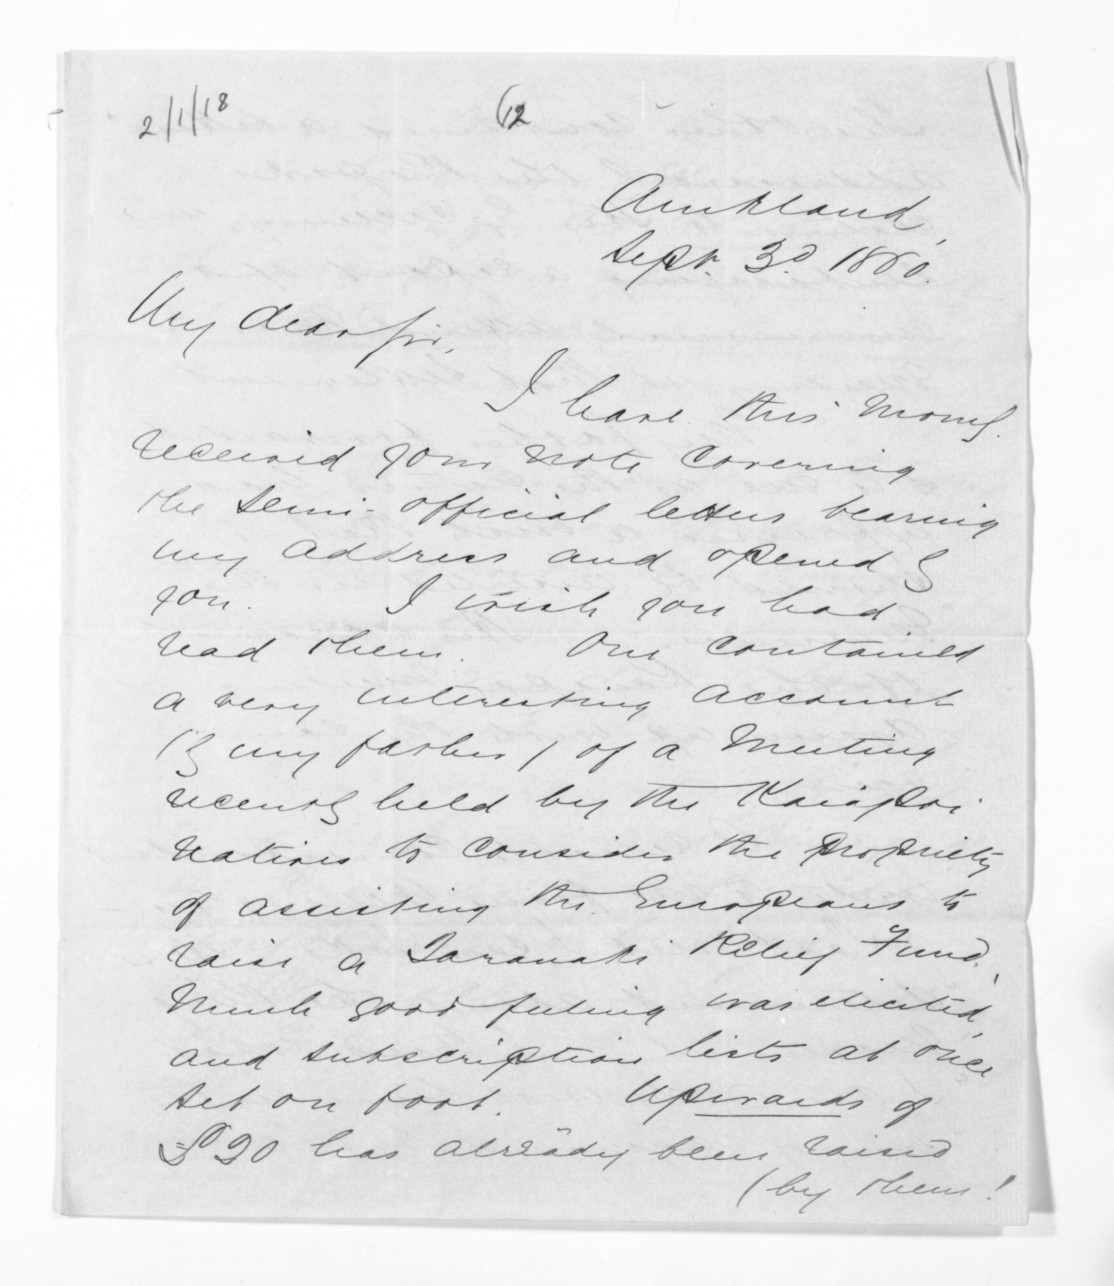 2/1/18
12
Auckland,
Sept. 3d. 1860.
My dear Sir,
I have this morng.
received your note covering
the semi-official letters bearing
my address and opened by
you. I wish you had
read them. One contained
a very interesting account
(by my father) of a Meeting
recently held by the Kaiapoi
natives to consider the propriety
of assisting the Europeans to
raise a Taranaki Relief Fund.
Much good feeling was elicited,
and subscription lists at once
set on foot. Upwards of
£20 has already been raised
(by them!